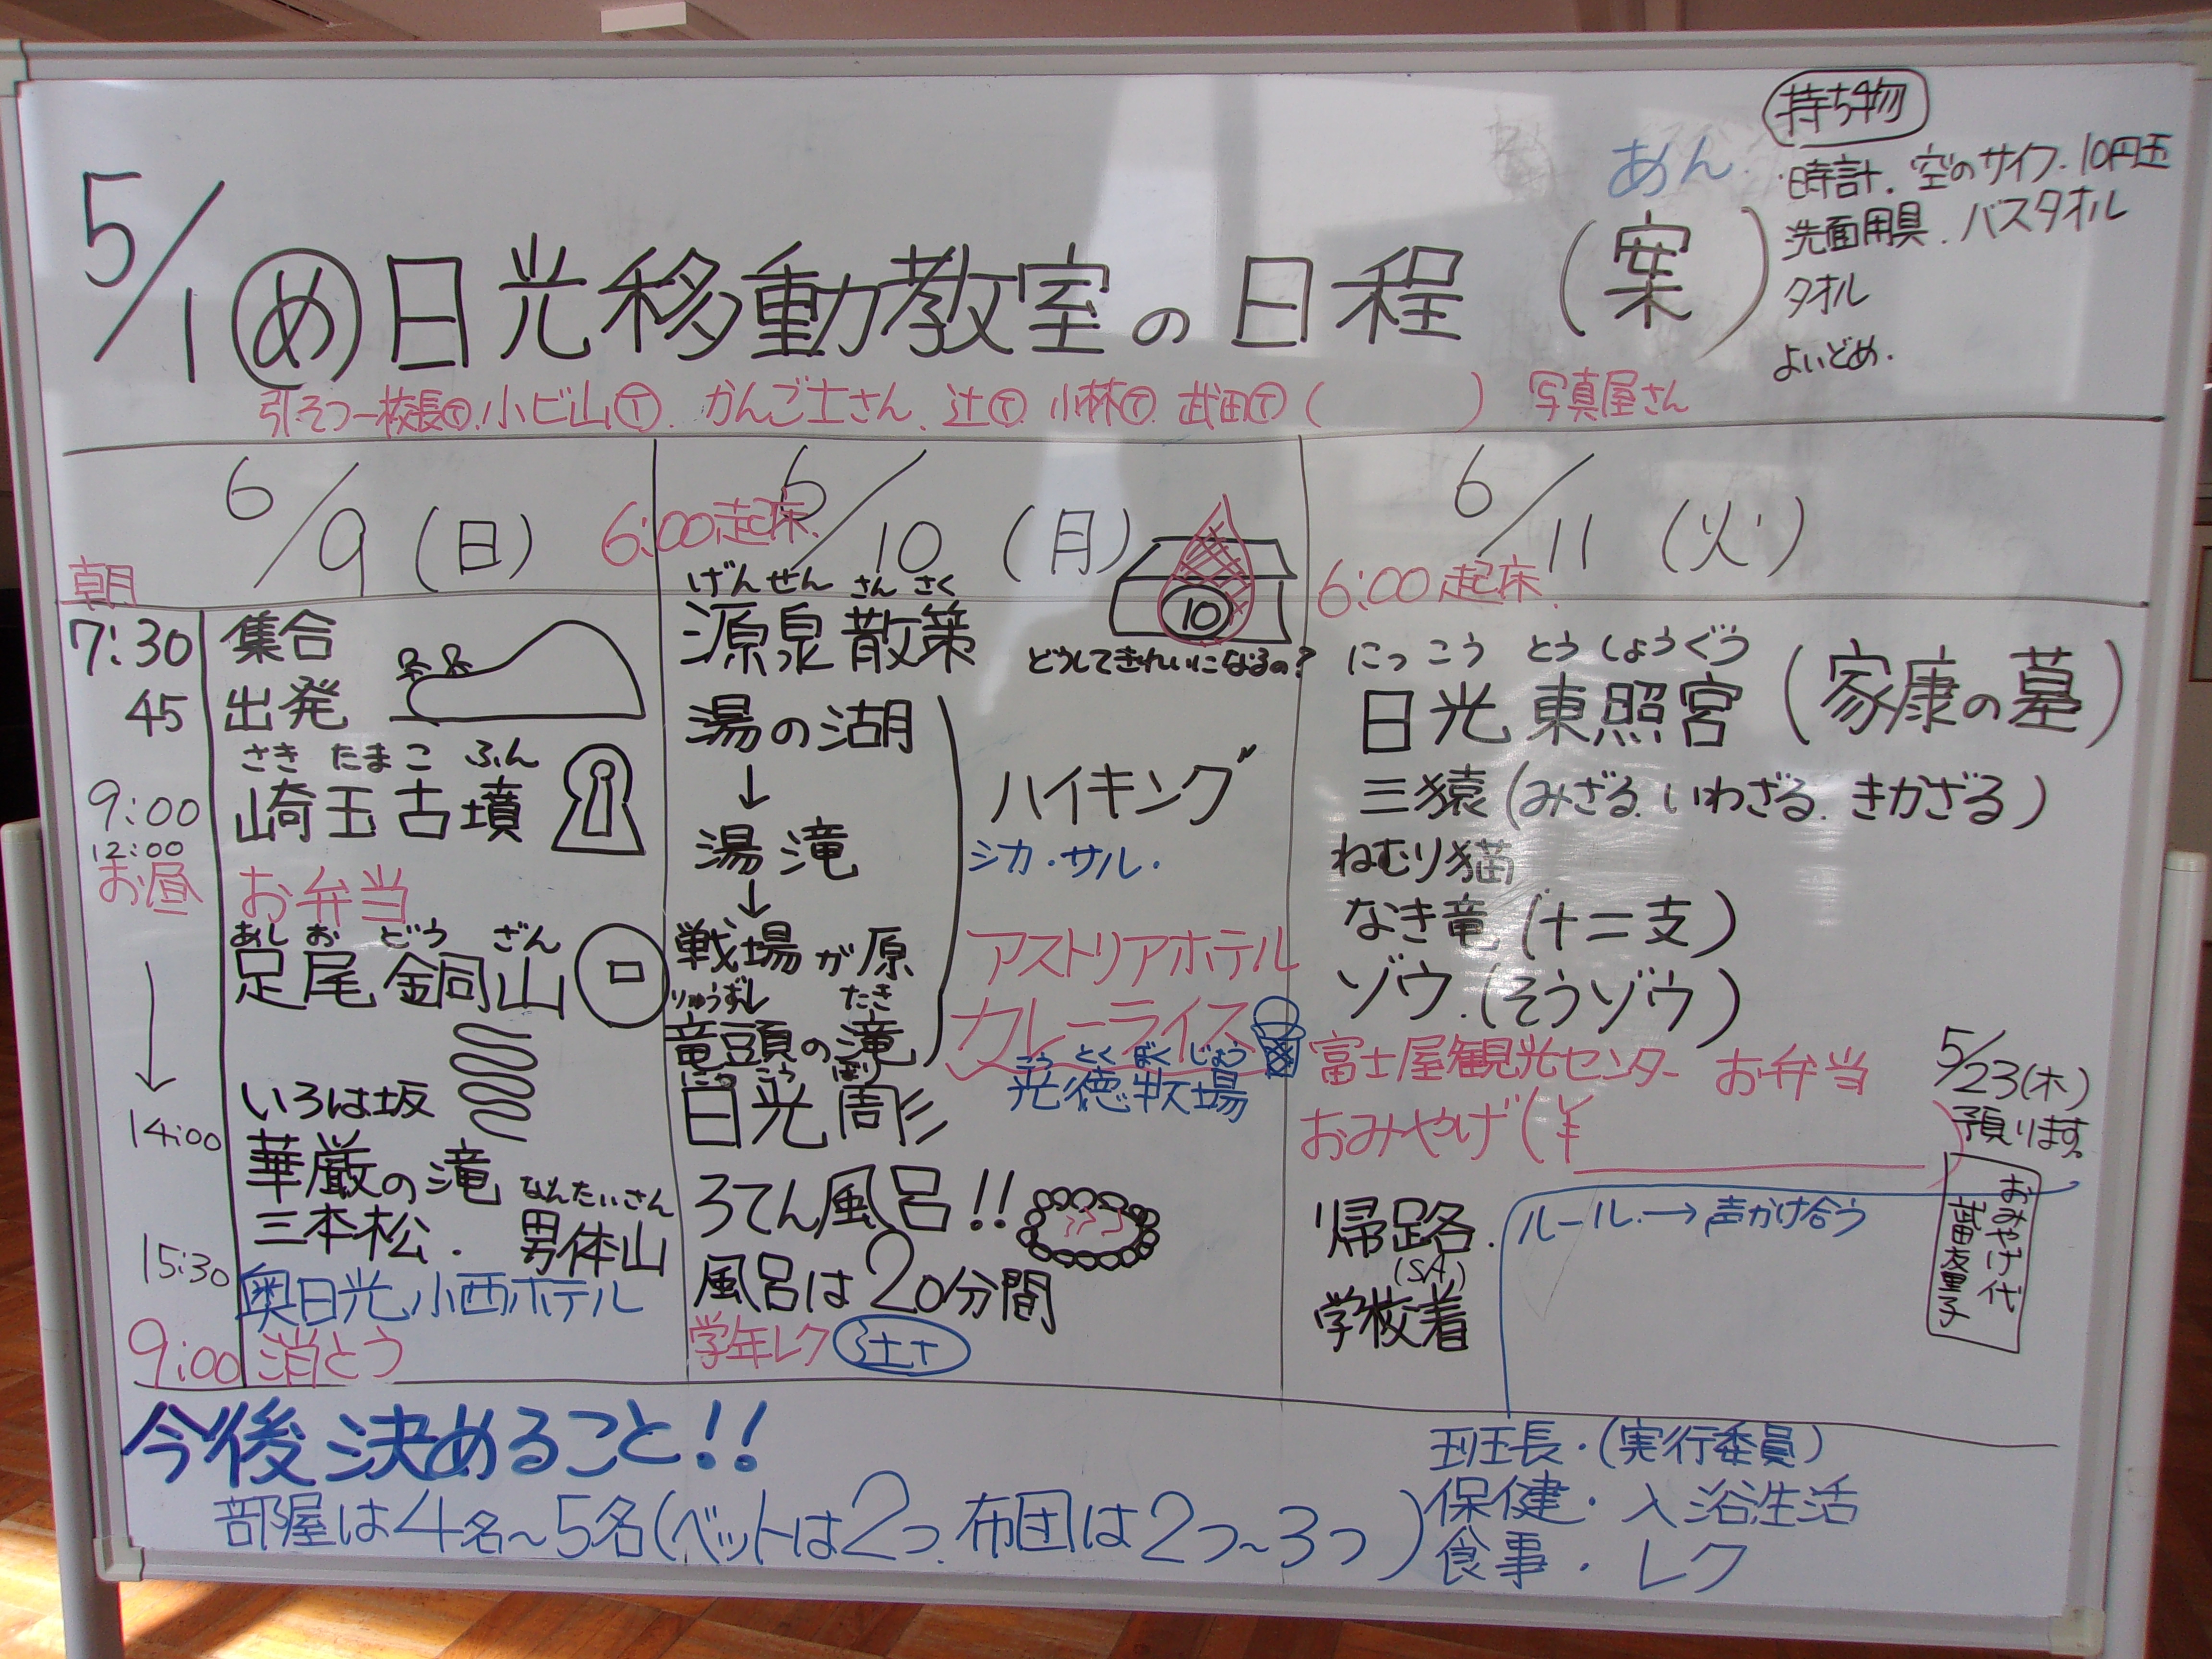 持ち物
時計.空のサイフ.10円玉
洗面用具.バスタオル
タオル
よいどめ.
あん
5/1 め 日光移動教室の日程(案)
引そつー校長T.小ビ山T.かんご士さん.辻T 小林T 武田T( ) 写真屋さん
6/9(日)
朝
7:30 集合
45 出発
さきたまこふん
9:00 崎玉古墳
12:00
お昼 お弁当
あしおどうざん
足尾銅山
いろは坂
14:00
華厳の滝
なんたいさん
三本松.男体山
15:30
奥日光小西ホテル
9:00 消とう
6/10(月)
6:00起床.
げんせんさんさく
源泉散策
10
どうしてきれいになるの?
湯の湖
↓
湯滝
↓
戦場が原
りゅうずしたき
竜頭の滝
ハイキング
シカ・サル・
アストリアホテル
カレーライス
こうとくぼくじょう
光徳牧場
にっこうぼり
日光彫
ろてん風呂!!
風呂は20分間
学年レク 辻T
6/11(火)
6:00起床.
にっこうとうしょうぐう
日光東照宮(家康の墓)
三猿(みざる.いわざる.きかざる)
ねむり猫
なき竜(十二支)
ゾウ.(そうゾウ)
富士屋観光センター お弁当
おみやげ(¥ )
5/23(木)
預ります。
おみやげ代
武田友里子
帰路.
(SA)
学校着
ルール.→声かけ合う
今後決めること!!
部屋は4名~5名(ベットは2つ.布団は2つ~3つ)
班長・(実行委員)
保健・入浴生活
食事・レク